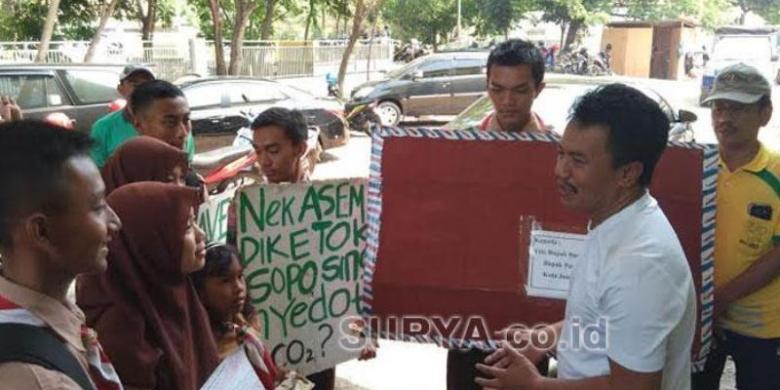 NeK ASEM
DIKETOK
SOPO SING
nyedot
CO₂?
Kepada :
Yth Bapak
Bapak
Kota
SURYA.co.id